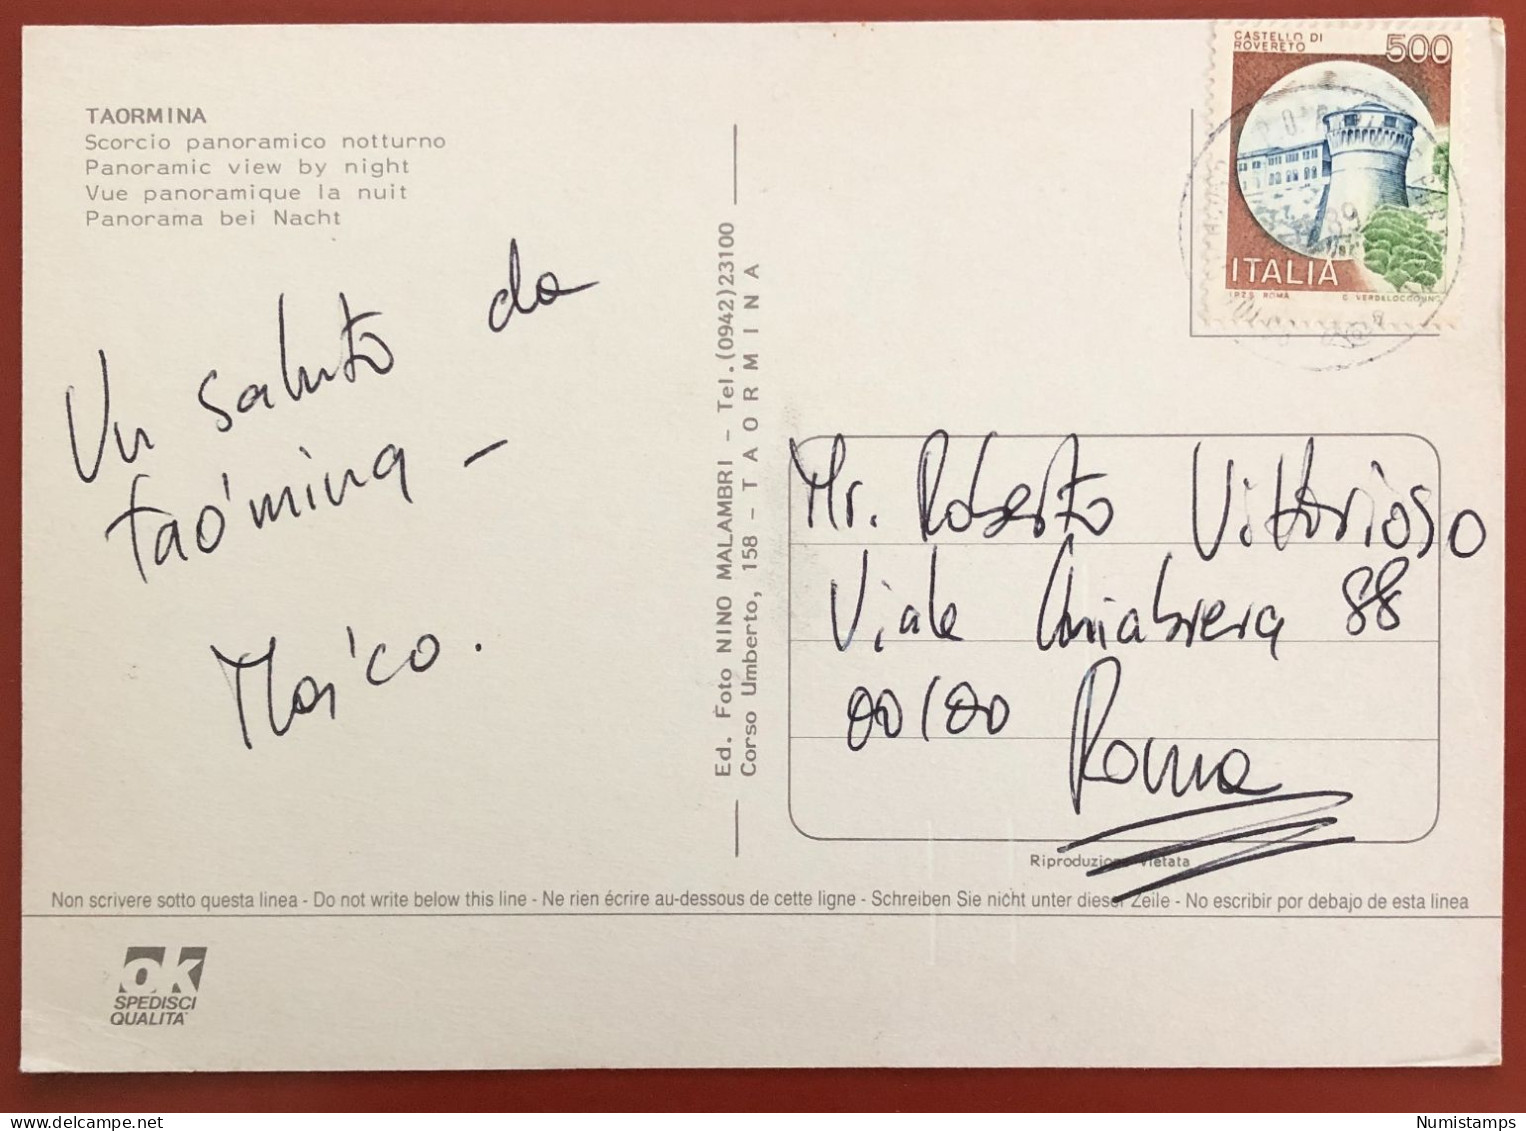 TAORMINA
Scorcio panoramico notturno
Panoramic view by night
Vue panoramique la nuit
Panorama bei Nacht
Un saluto da
taormina -
Marco.
Ed. Foto NINO MALAMBRI - Tel.(0942)23100
Corso Umberto, 158 - TAORMINA
CASTELLO DI
ROVERETO
500
ITALIA
I.P.Z.S. ROMA
89
Mr. Roberto Vittorioso
Viale Chiabrera 88
00100
Roma
Riproduzione vietata
Non scrivere sotto questa linea - Do not write below this line - Ne rien écrire au-dessous de cette ligne - Schreiben Sie nicht unter dieser Zeile - No escribir por debajo de esta linea
ok
SPEDISCI
QUALITA'
Numistamps